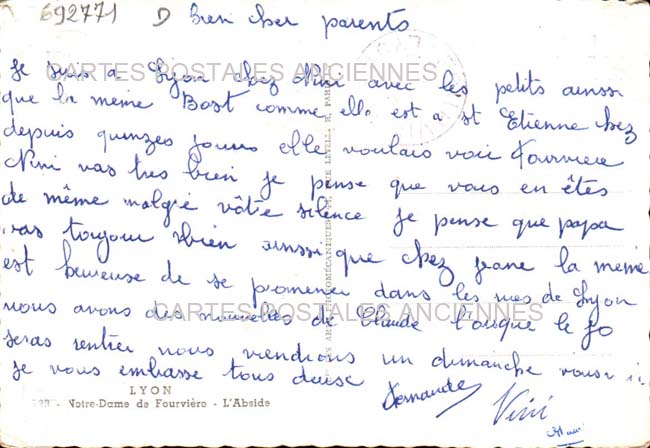 692771 D Bien cher parents
Je suis a Lyon chez Nini avec les petits ainssi
CARTES POSTALES ANCIENNES
que la meme Bost comme elle est a st Etienne chez
depuis quinzes jours elle voulais voir Fourviere
Nini vas tres bien je pense que vous en êtes
de même malgré vôtre silence je pense que papa
vas toujour bien ainssi que chez jeane la meme
est heureuse de se promener dans les rues de Lyon
CARTES POSTALES ANCIENNES
nous avons des nouvelles de Claude l'orsque le
seras rentrer nous viendrons un dimanche vous
je vous embrasse tous
LYON
- Notre-Dame de Fourvière - L'Abside
Nini